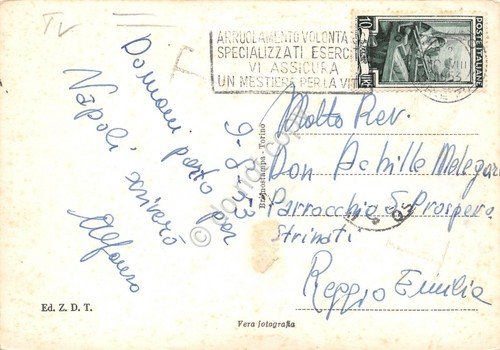 TV
ARRUOLAMENTO VOLONTA
SPECIALIZZATI ESERCIT
VI ASSICURA
UN MESTIERE PER LA VIT
10
POSTE ITALIANE
Domani parto per
Napoli scriverò
9-8-53
Molto Rev.
Don Achille Melegari
Parrocchia S. Prospero
Strinati
Reggio Emilia
Bromostampa - Torino
Ed. Z. D. T.
Vera fotografia